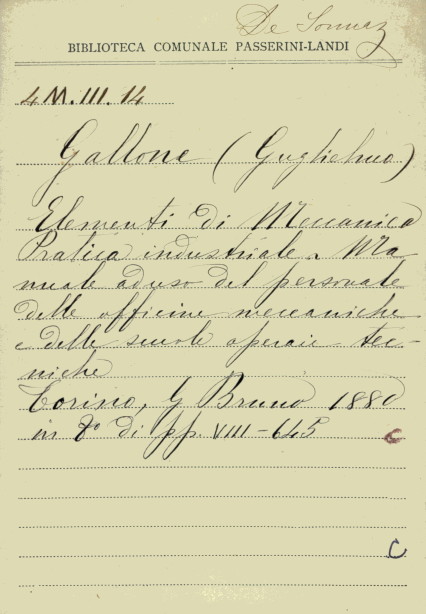 De Sonnaz
BIBLIOTECA COMUNALE PASSERINI-LANDI
4 M. III. 14
Gallone (Guglielmo)
Elementi di Meccanica
Pratica industriale. Ma
nuale ad uso del personale
delle officine meccaniche
e delle scuole operaie tec-
niche
Torino, G Bruno 1880
in 8º di pp. VIII-645 C
C